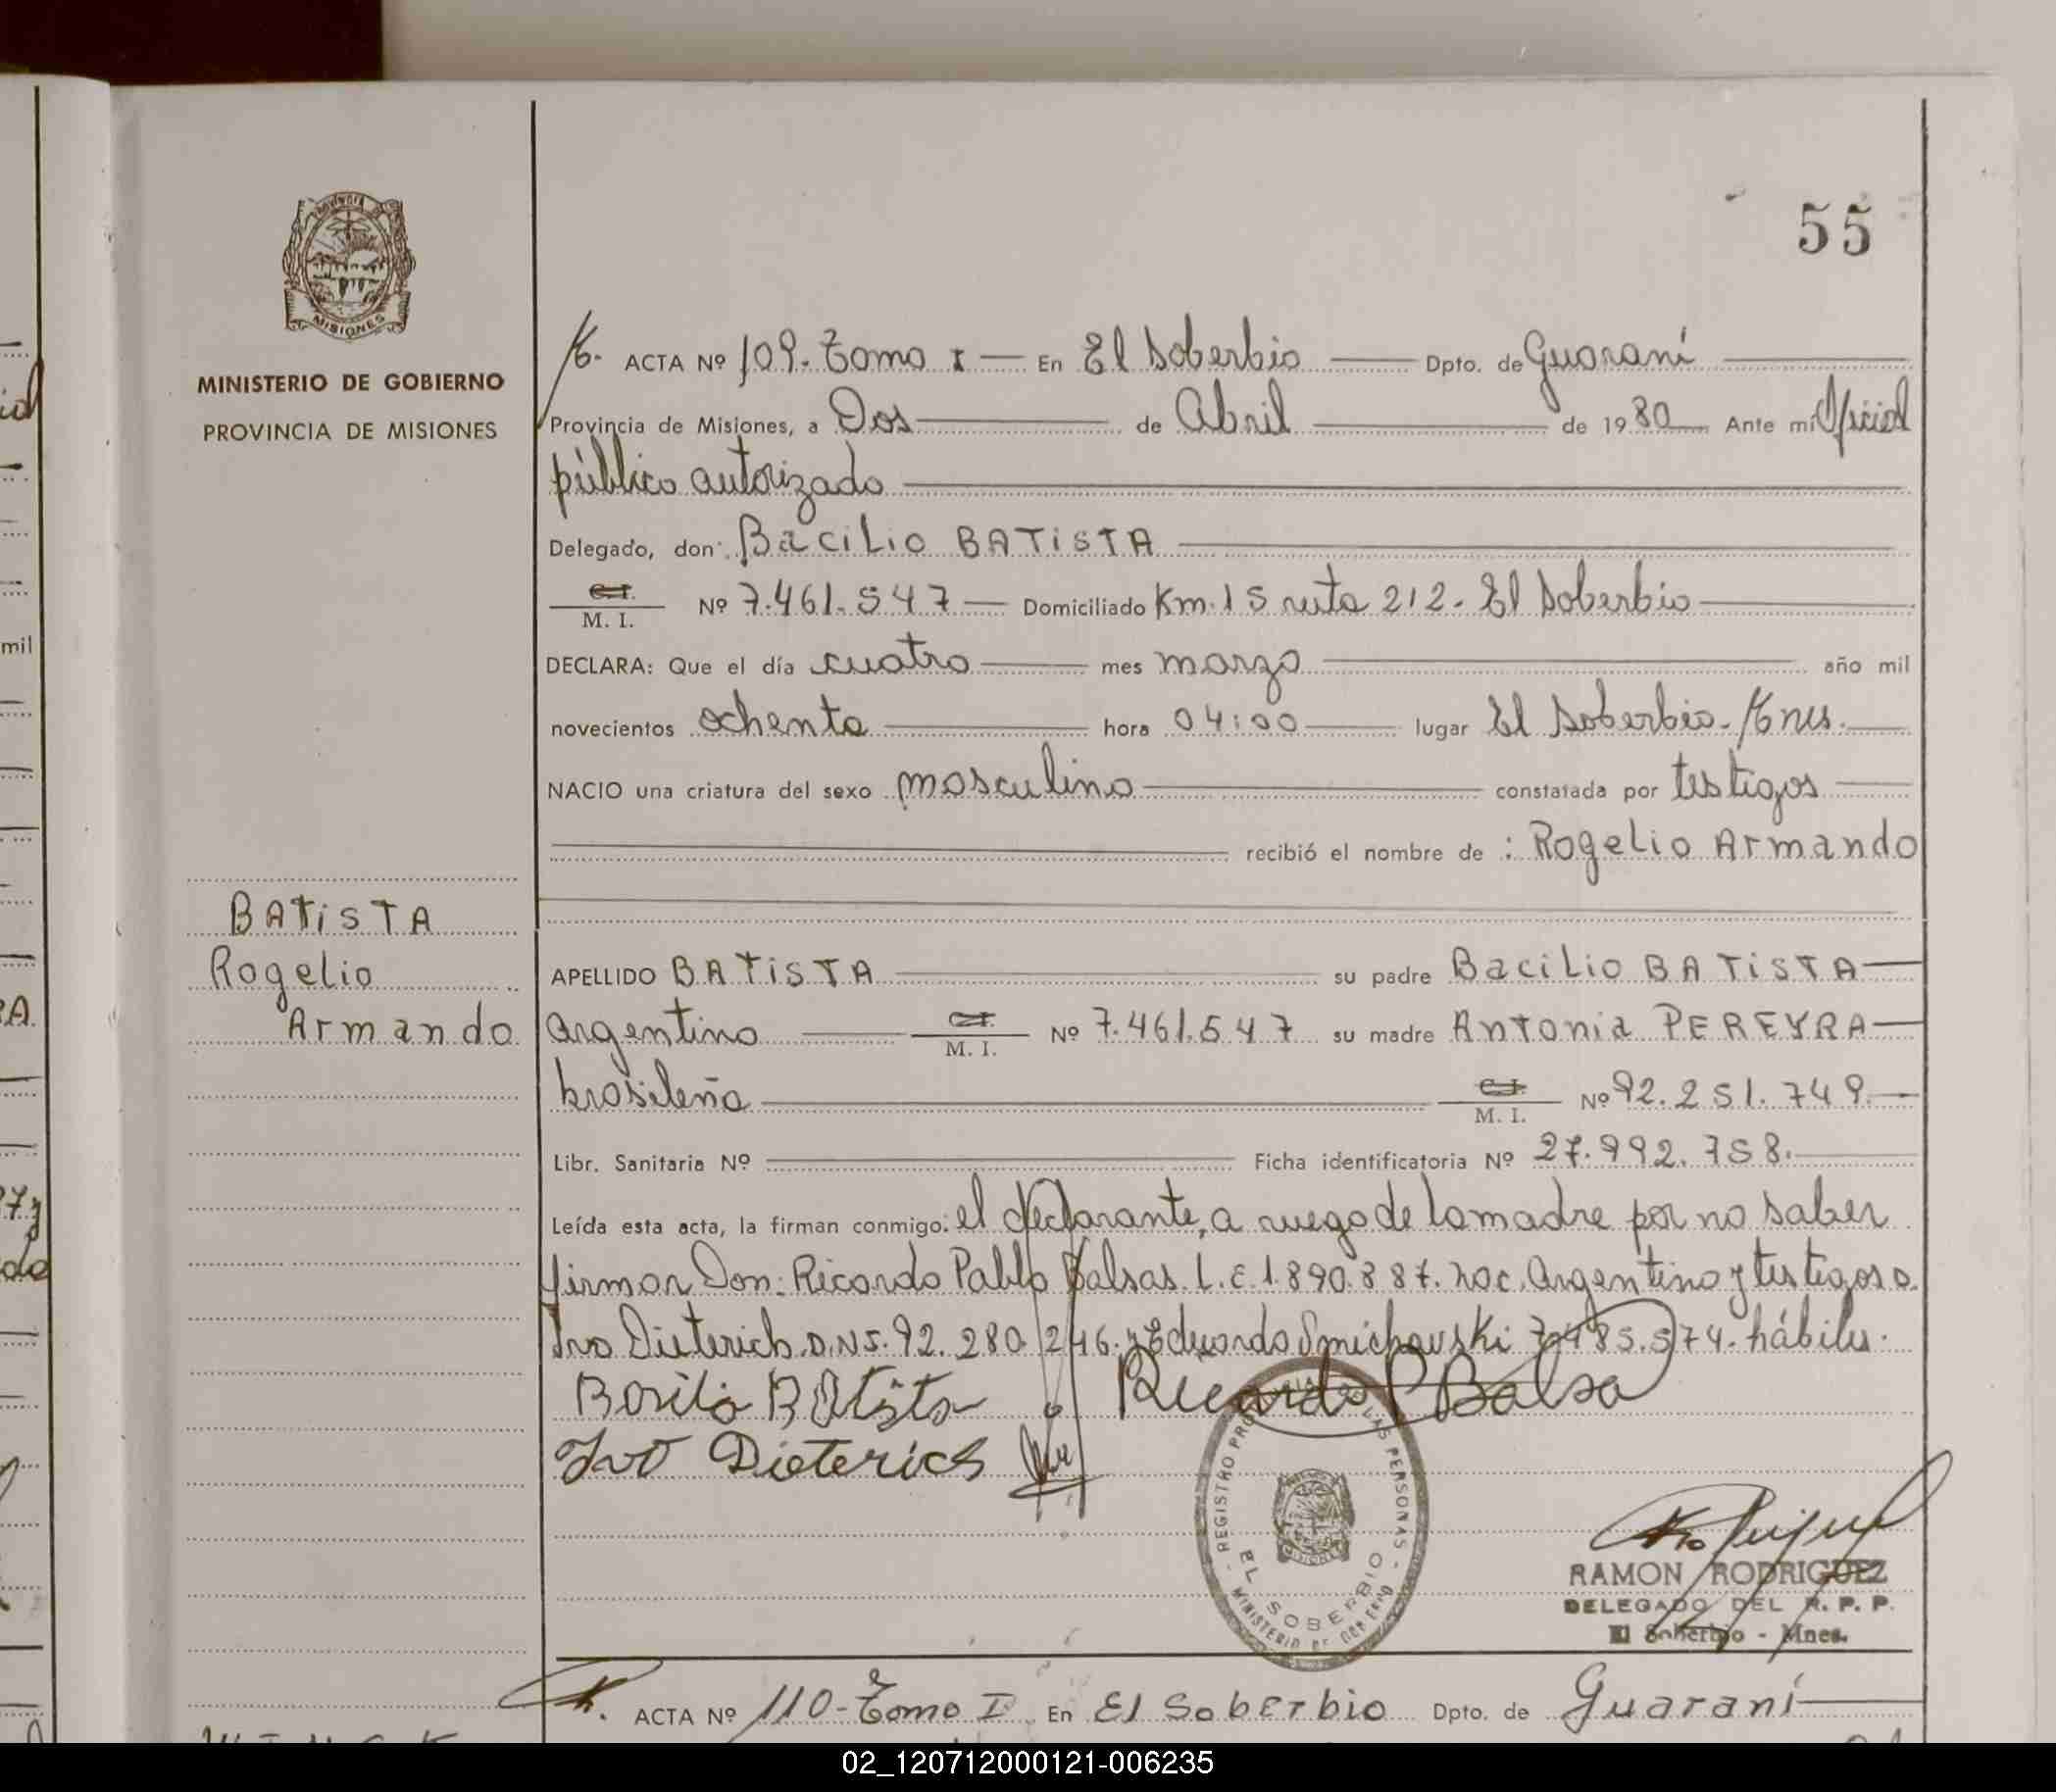 55
MINISTERIO DE GOBIERNO
PROVINCIA DE MISIONES
ACTA Nº 109. Tomo I — En El Soberbio — Dpto. de Guaraní
Provincia de Misiones, a Dos — de Abril — de 1980 Ante mí Oficial
público autorizado
Delegado, don: Bacilio BATISTA
C.I. / M. I. Nº 7.461.547 — Domiciliado Km. 15 ruta 212. El Soberbio
DECLARA: Que el día cuatro — mes marzo — año mil
novecientos ochenta — hora 04:00 — lugar El Soberbio. Mnes.
NACIO una criatura del sexo masculino — constatada por testigos
recibió el nombre de : Rogelio Armando
BATISTA
Rogelio
Armando
APELLIDO BATISTA — su padre Bacilio BATISTA
argentino — C.I. / M. I. Nº 7.461.547 su madre Antonia PEREYRA
brasileña — C.I. / M. I. Nº 92.251.749.
Libr. Sanitaria Nº — Ficha identificatoria Nº 27.992.758.
Leída esta acta, la firman conmigo: el declarante, a ruego de la madre por no saber
firmar Don: Ricardo Pablo Balsas. L.E. 1.890.887. nac. Argentino y testigos D.
Ivo Dieterich D.N.I. 92.280.246. y Eduardo Smichouski 7.485.574. hábiles.
Basilio Batista Ricardo P Balsa
Ivo Dieterich
REGISTRO PROVINCIAL DE LAS PERSONAS - MINISTERIO DE GOBIERNO -
MISIONES
EL SOBERBIO
RAMON RODRIGUEZ
DELEGADO DEL R. P. P.
El Soberbio - Mnes.
ACTA Nº 110 - Tomo I En El Soberbio Dpto. de Guaraní
mil
02_120712000121-006235